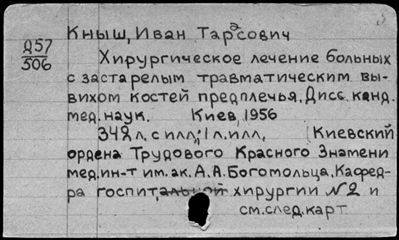 Д57
506
Кныш, Иван Тарасович
Хирургическое лечение больных
с застарелым травматическим вы-
вихом костей предплечья. Дисс. канд.
мед. наук. Киев, 1956
348 л. с илл.; 1 л. илл. (Киевский
ордена Трудового Красного Знамени
мед. ин-т им. ак. А.А. Богомольца, Кафед-
ра госпитальной хирургии №2 и
см. след. карт.